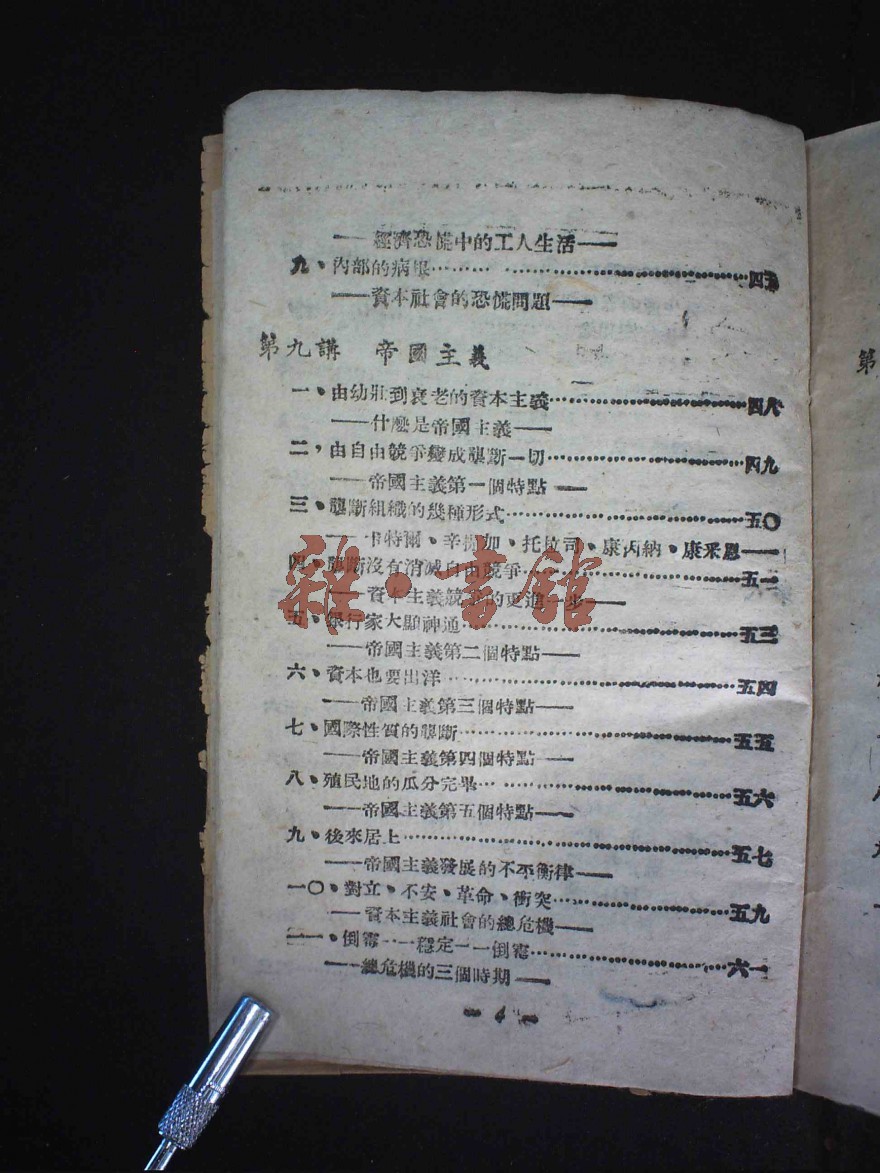 ——經濟恐慌中的工人生活——
九、內部的病根……………………四五
——資本社會的恐慌問題——
第九講 帝國主義
一、由幼壯到衰老的資本主義……………………四八
——什麼是帝國主義——
二，由自由競爭變成壟斷一切……………………四九
——帝國主義第一個特點——
三、壟斷組織的幾種形式……………………五〇
——卡特爾、辛揥加、托拉司、康丙納、康采恩——
四、壟斷沒有消滅自由競爭……………………五二
——資本主義競爭的更進一步——
五、銀行家大顯神通……………………五三
——帝國主義第二個特點——
六、資本也要出洋……………………五四
——帝國主義第三個特點——
七、國際性質的壟斷……………………五五
——帝國主義第四個特點——
八、殖民地的瓜分完畢……………………五六
——帝國主義第五個特點——
九、後來居上……………………五七
——帝國主義發展的不平衡律——
一〇、對立、不安、革命、衝突……………………五九
——資本主義社會的總危機——
一一、倒霉——穩定——倒霉……………………六一
——總危機的三個時期——
— 4 —
雜·書館
第